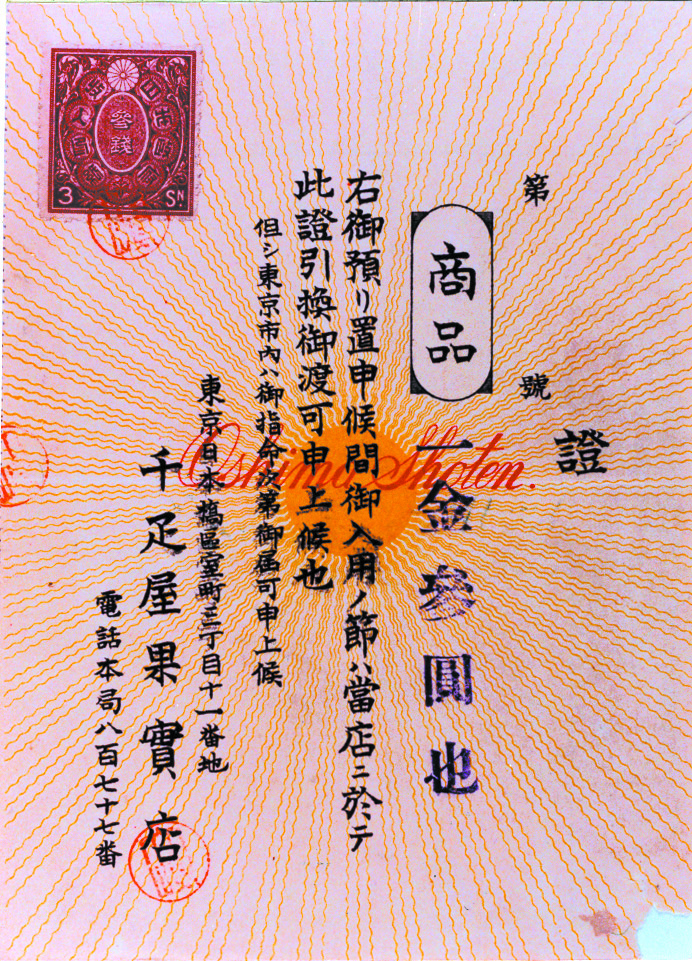 第　號
證
商品
一金參圓也
右御預リ置申候間御入用ノ節ハ當店ニ於テ
此證引換御渡可申上候也
但シ東京市內ハ御指命次第御届可申上候
東京日本橋區室町三丁目十一番地
千疋屋果實店
電話本局八百七十七番
Oshima Shoten.
參錢
3 Sn